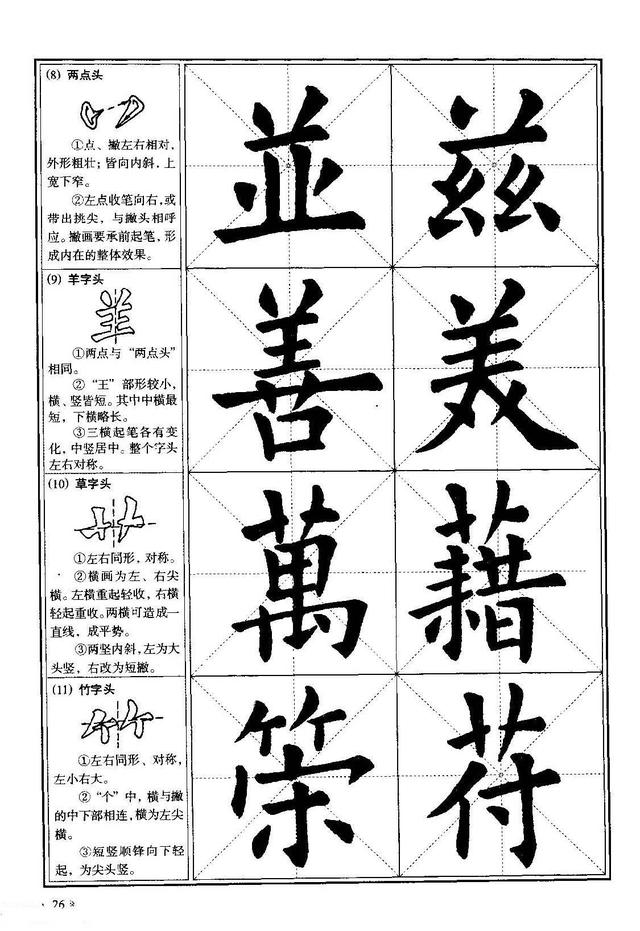 (8) 两点头
①点、撇左右相对，
外形粗壮；皆向内斜，上
宽下窄。
②左点收笔向右，或
带出挑尖，与撇头相呼
应。撇画要承前起笔，形
成内在的整体效果。
並 兹
(9) 羊字头
①两点与“两点头”
相同。
②“王”部形较小，
横、竖皆短。其中中横最
短，下横略长。
③三横起笔各有变
化，中竖居中。整个字头
左右对称。
善 美
(10) 草字头
①左右同形，对称。
②横画为左、右尖
横。左横重起轻收，右横
轻起重收。两横可造成一
直线，成平势。
③两竖内斜，左为大
头竖，右改为短撇。
萬 藉
(11) 竹字头
①左右同形、对称，
左小右大。
②“个”中，横与撇
的中下部相连，横为左尖
横。
③短竖顺锋向下轻
起，为尖头竖。
苻
26